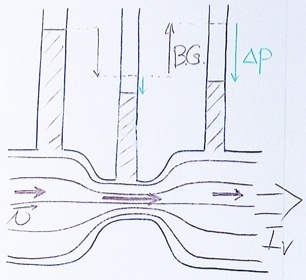 B.G.
Δp
v
I_V